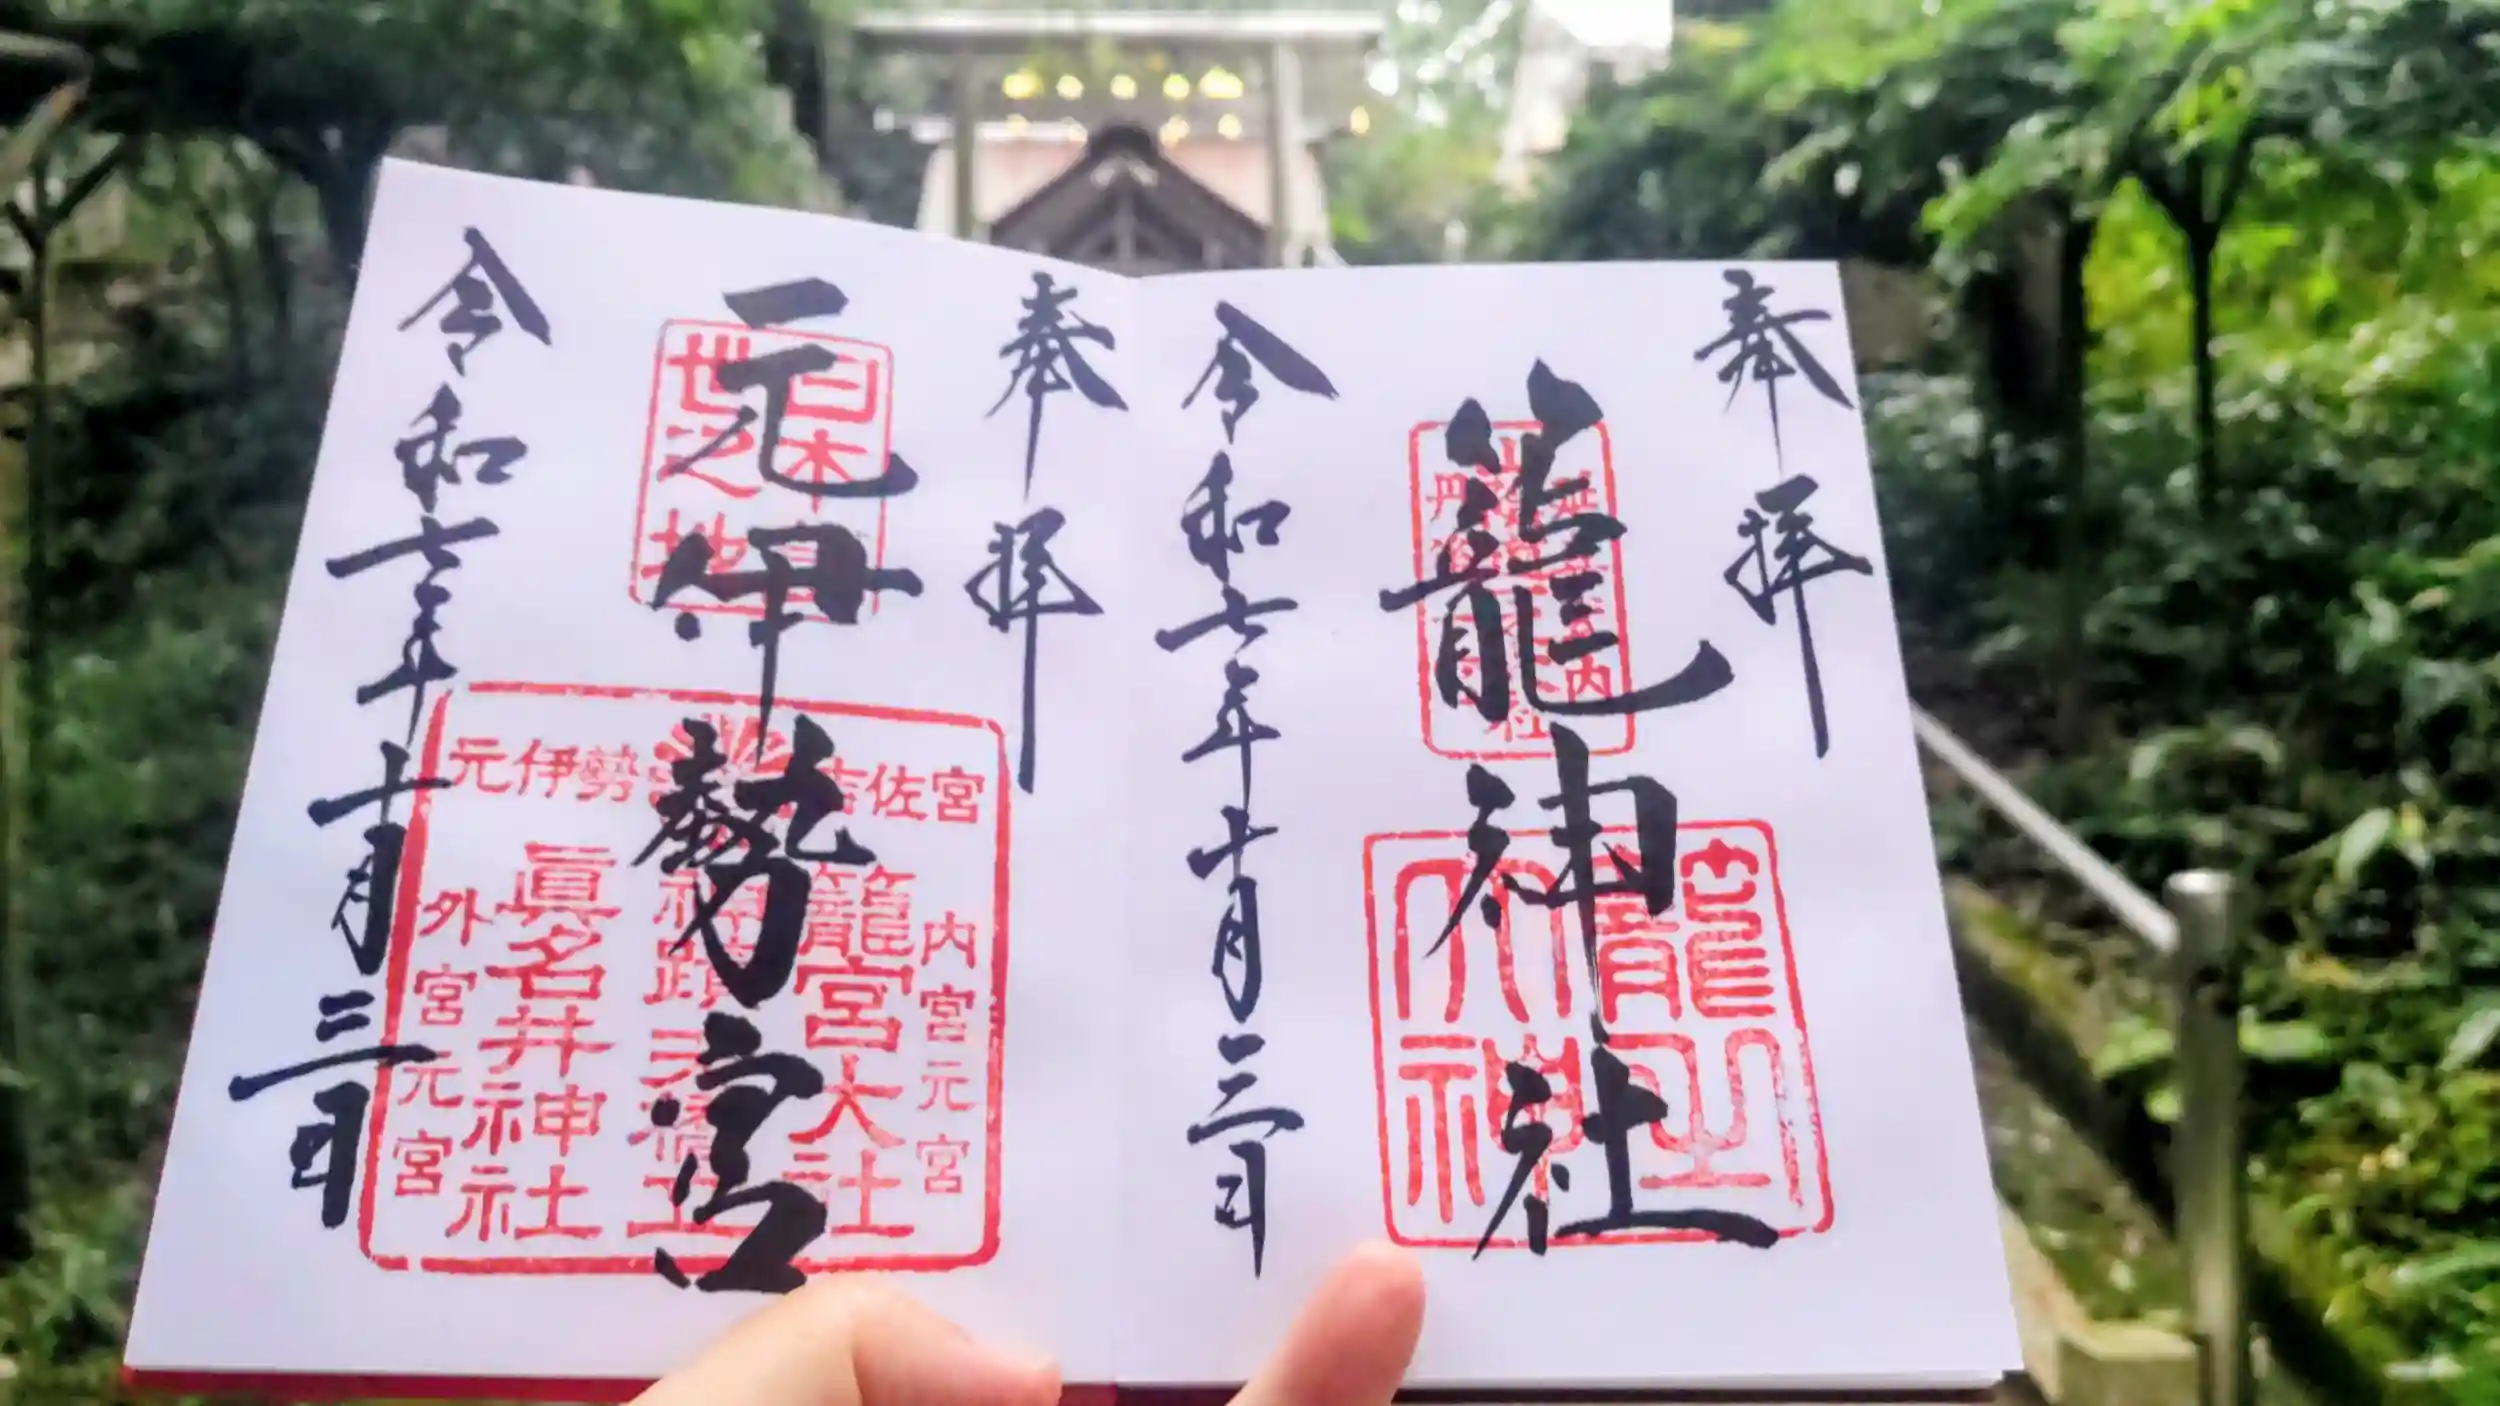 奉拝
籠神社
令和七年十月三日
奉拝
元伊勢宮
令和七年十月三日
日本
世之地
元伊勢 吉佐宮
内宮元宮
籠宮大社
神蹟
眞名井神社
外宮元宮
籠之大神